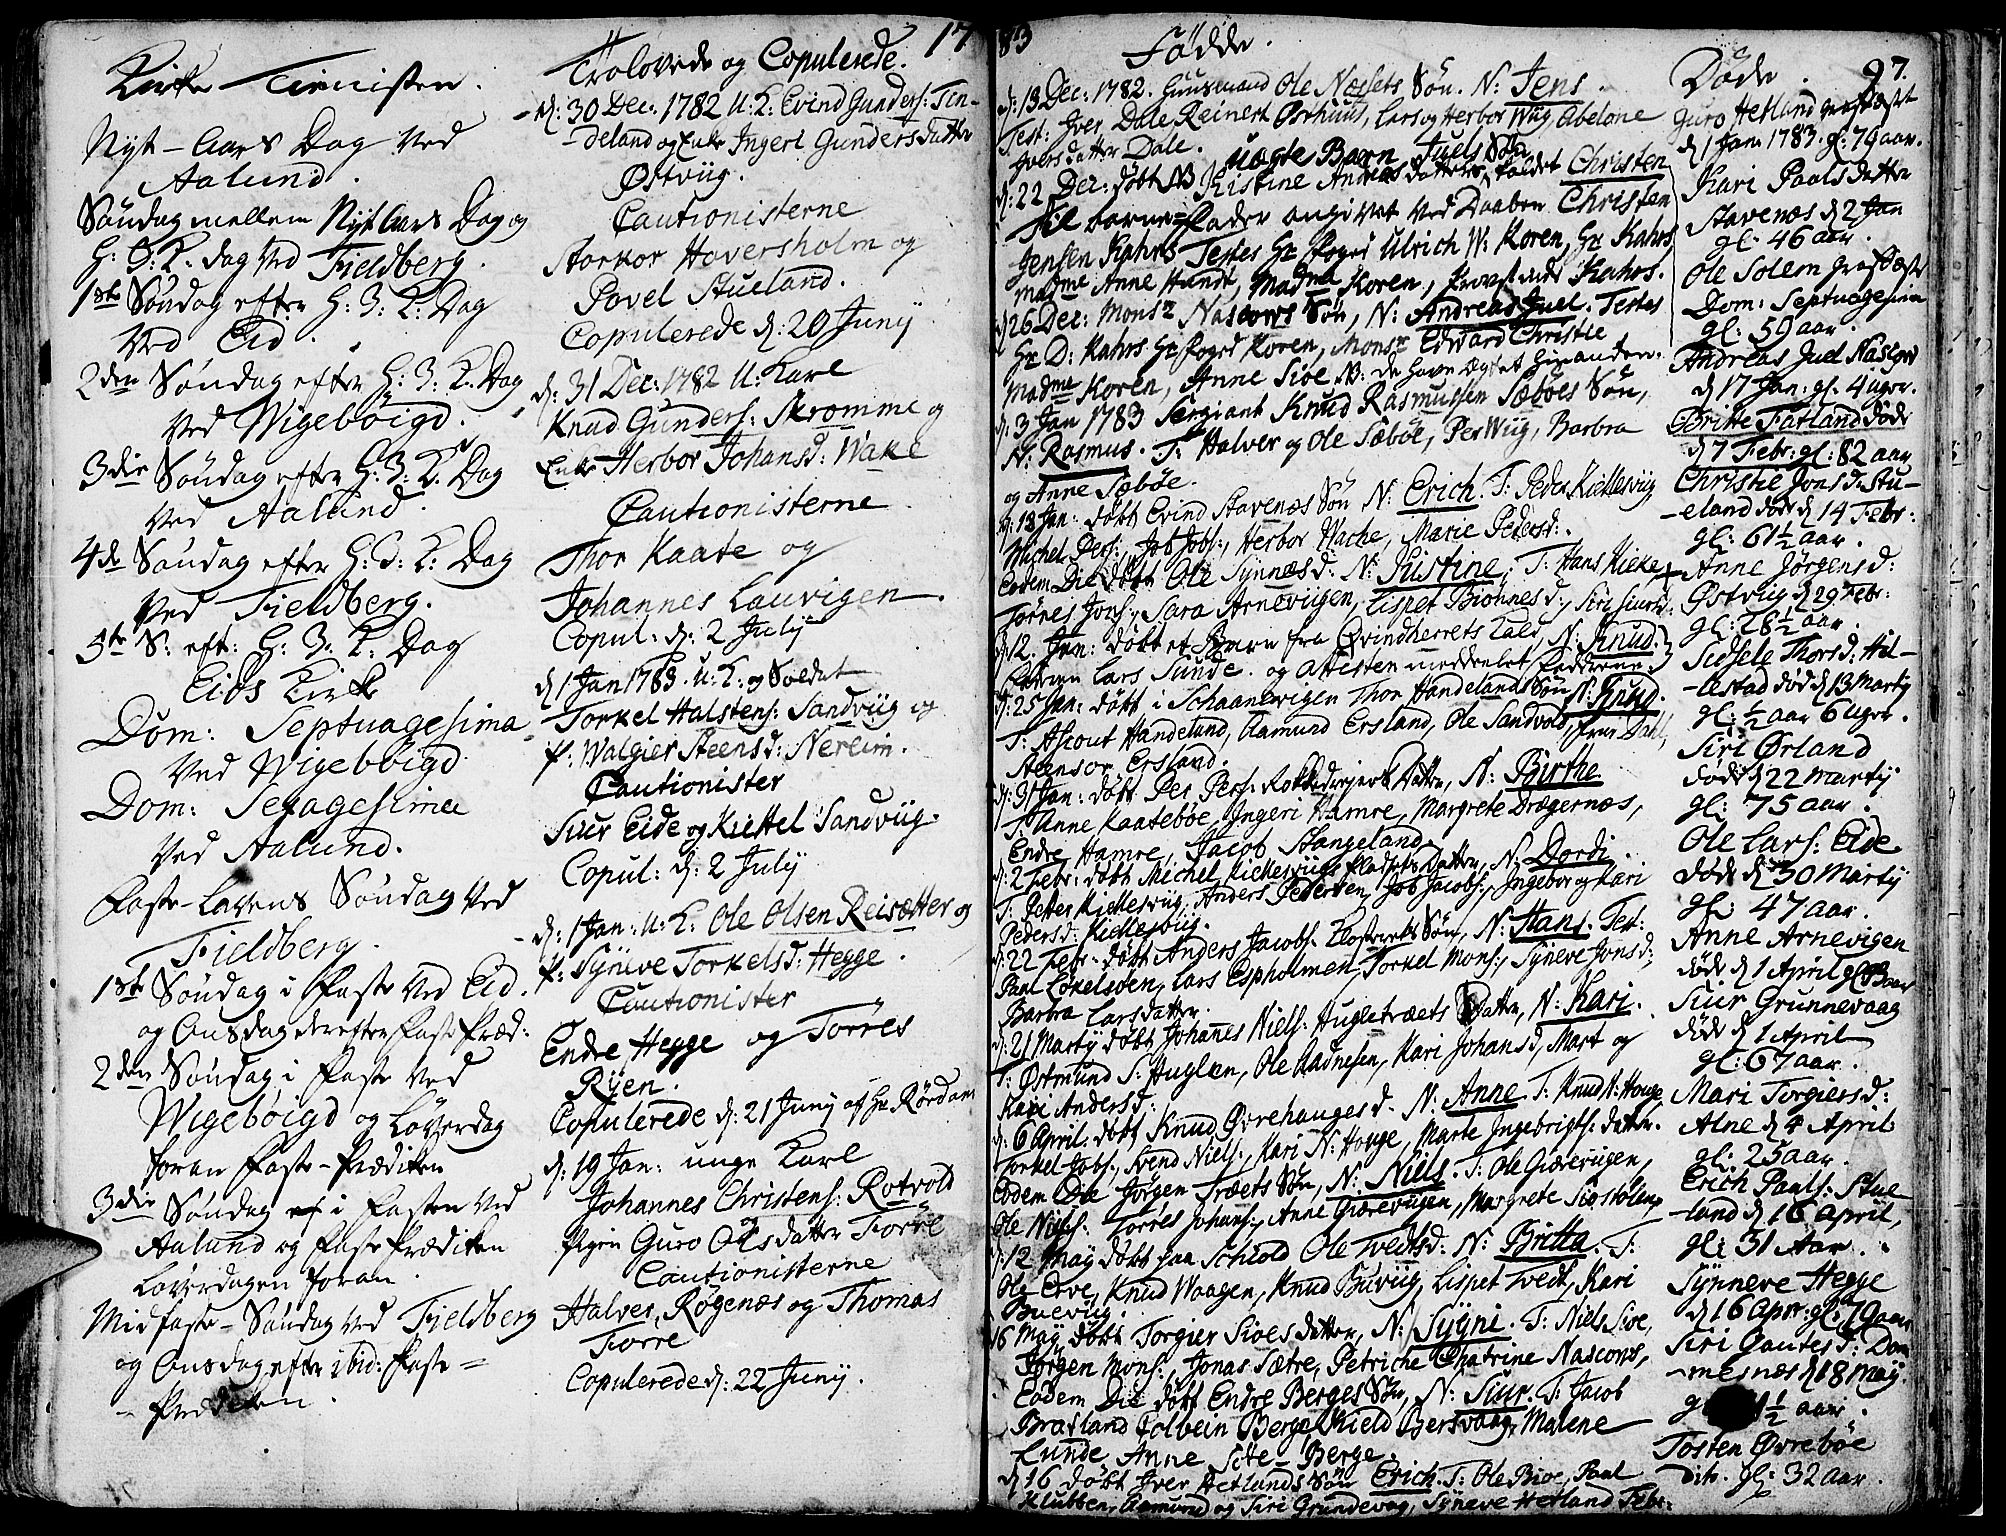 Kirke-Tienisten.
Nyt-Aars Dag ved
Aalund.
Søndag mellem Nyt Aars Dag og
H: 3: K: dag ved Fieldberg.
1ste Søndag efter H: 3: K: Dag
ved Eid.
2den Søndag efter H: 3: K: Dag
ved Wigebøigd.
3die Søndag efter H: 3: K: Dag
ved Aalund.
4de Søndag efter H: 3: K: Dag
ved Fieldberg.
5te S: eft: H: 3: K: Dag
Eids Kirke
Dom: Septuagesima
ved Wigebøigd
Dom: Sexagesima
ved Aalund.
Faste-Lavens Søndag ved
Fieldberg.
1ste Søndag i Faste ved Eid.
og Onsdag derefter Faste Præd:
2den Søndag i Faste ved
Wigebøigd og Løverdag
foran Faste-Prædiken
3die Søndag i Fasten ved
Aalund og Faste Prædiken
Løverdagen foran.
Midfaste-Søndag ved Fieldberg
og Onsdag efter ibid: Faste=
-Prædiken.
Trolovede og Copulerede. 17
d: 30 Dec: 1782 U: K: Evind Gunders: Tin-
-deland og Enke Ingerl Gunders Datter
Østvüg.
Cautionisterne
Storkor Hoversholm og
Povel Stueland.
Copulerede d: 20 Junij
d: 31 Dec: 1782 U: Karl
Knud Gunders: Skromme og
Enke Herbor Johansd: Wake
Cautionisterne
Thor Kaate og
Johannes Lauvigen.
Copul: d: 2 Julij
d 1 Jan 1783. U: K: og Soldat
Torkel Halstens: Sandvüg og
P: Walgier Steensd: Nerlim.
Cautionister
Siur Eide og Kiettel Sandvüg.
Copul: d: 2 Julij
d: 1 Jan: U: K: Ole Olsen Reisætter og
P: Syneve Torkelsd: Hegge.
Cautionister
Endre Hegge og Torres
Rÿen.
Copulerede d: 21 Junij af Hr Rördam
d: 19 Jan: unge Karl
Johannes Christens: Rotvold
og Pigen Guro Olsdatter Torre
Cautionisterne
Halver Røgenæs og Thomas
Torre
Copulerede d: 22 Junij.
83 Fødde.
d: 13 Dec: 1782. Huusmand Ole Næssets Søn. N: Jens.
Test: Iver Dale, Reinert Østhuus, Lars og Herbor Wüg, Abelone
Iversdatter Dale.
d: 22 Dec: døbt NB uægte Barn Kistine Andreas datters Juels Søn kaldet Christen
til barne-Fader angivet ved Daaben Christen
Jensen Kahrs Testes Hr Foged Ulrich W: Koren, Hr Kahrs
Madme Anne Hundt, Madme Koren,
d 26 Dec: Monsr Nascows Søn, N: Andreas Juel. Testes
Hr D: Kahrs Hr Foged Koren, Monsr Edward Christie
Madme Koren, Anne Sioe
d: 3 Jan 1783 Sergiant Knud Rasmussen Sæbøes Søn,
N: Rasmus. T: Halver og Ole Sæbøe, Per Wüg, Barbra
og Anne Sæbøe.
d: 18 Jan: døbt Evind Stavenæs Søn N: Erich. T: Peder Kickesvüg
Michel Pers:, Job Jobs:, Herbor Wache, Marie Pedersd:.
Eodem Die døbt Ole Synnæs d: N: Sustine. T: Hans Kicke,
Tornes Jons:, Sara Arnevigen, Lispet Biönnesd:, Siri Siursd:
d: 12. Jan: døbt et Barn fra Qvindherrets Kald, N: Knud.
Faderen Lars Sunde. og Attesten meddeelet Faderen.
d: 25 Jan: døbt i Schaanevigen Thor Handelands Søn N: Knud.
T: Aschout Handeland, Aamund Ersland, Ole Sandvold, Dahl,
Steensor Ersland.
d: 31 Jan: døbt Per Pers: Datter, N: Birthe
T: Anne Kaatebøe, Ingeri Hamre, Margrete Drægernæs,
Endre Hamre, Jacob Stangeland.
d: 2 Febr: døbt Michel Kickesvügs Pladsets Datter, N: Dordi
T: Petter Kickesvüg, Anders Pedersen, Job Jacobs:, Ingebor og Kari
Pedersd: Kickesvüg.
d: 22 Febr: døbt Anders Jacobs: Søn, N: Hans. Test:
Paul Lokelsøen, Lars Espholmen, Torkel Mons:, Syneve Jonsd:,
Barbra Larsdatter.
d: 21 Martij døbt Johannes Niels: Hugletræets Datter, N: Kari.
T: Østmund S: Huglen, Ole Aadnesen, Kari Johansd, Mart og
Kari Andersd:
d: 6 April. døbt Knud Øvrehauges d. N: Anne T: Knud N: Houge,
Torkel Jobs:, Svend Niels:, Kari N: Houge, Marte Ingebrigts: datter.
Eodem Die Jørgen Træets Søn, N: Niels. T: Ole Giærevigen,
Ole Niels: Torres Johans:, Anne Giærevigen, Margrete Siostølen
d: 12 Maÿ døbt paa Schiold Ole Tvedts d: N: Britta. T:
Ole Erve, Knud Waagen, Knud Buvüg, Lispet Tvedt, Kari
Buevüg.
16 Maÿ døbt Torgier Sioes datter, N: Sygni. T: Niels Sioe,
Jørgen Mons: Jonas Sætre, Petriche Chatrine Nascows,
Eodem Die døbt Endre Berges Søn, N: Siur T: Jacob
Bratland Colbein Berge, Kield Bersvaag, Malene
Lunde Anne Sioe Berge.
d: 16 døbt Iver Hetlands Søn Erich. T: Ole Bioe, Paul
Klubben, Aamund og Siri Grundevog, Syneve Hetland Febr:
Døde. 97.
Guro Hetland grafsæst
d 1 Jan: 1783. gl: 79 aar.
Kari Paalsdatter
Stavenæs d 2 Jan
gl: 46 aar.
Ole Solem grafsæst
Dom: Septuagesim
gl: 59 aar.
Andreas Juel Nascow
d 17 Jan: gl: 4 uger.
Britte Fatland døde
d 7 Febr: gl: 82 aar
Christie Jonsd: Stu-
-eland døde d 14 Febr:
gl: 61½ aar.
Anne Jørgensd:
Østvüg d 29 Febr:
gl: 28½ aar.
Sidsele Thorsd: Hil-
-lestad død d 13 Martij
gl: ½ aar 6 uger.
Siri Ørland
døde d 22 Martij
gl: 75 aar.
Ole Lars: Eide
døde d 30 Martij
gl: 47 aar.
Anne Arnevigen
døde d 1 April gl: aar
Siur Grunnevaag
døde d 1 April
gl: 67 aar.
Mari Torgiersd:
Alne d 4 April
gl: 25 aar.
Erich Paals: Stue
-land d 16 April,
gl: 31 Aar.
Synneve Hegge
d 16 Apr: gl: 79 aar
Siri Gautesd: Dom
-mesnæs d 18 Maÿ.
gl: ½ aar.
Tosten Øvrebøe
dito. gl: 32 Aar.